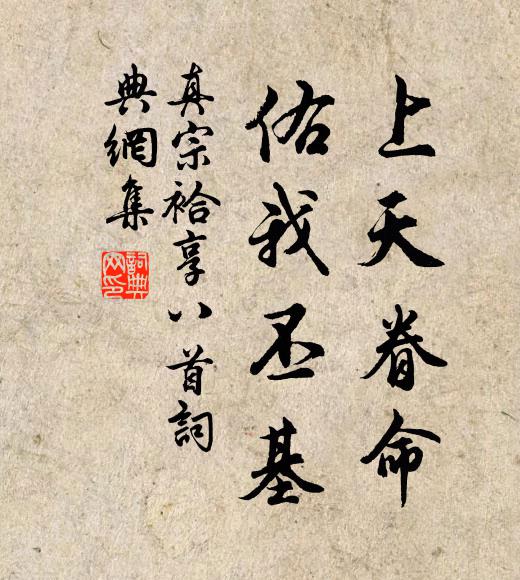 上天眷命
佑我丕基
真宗袷享八首詞
典網集
詞典
网印